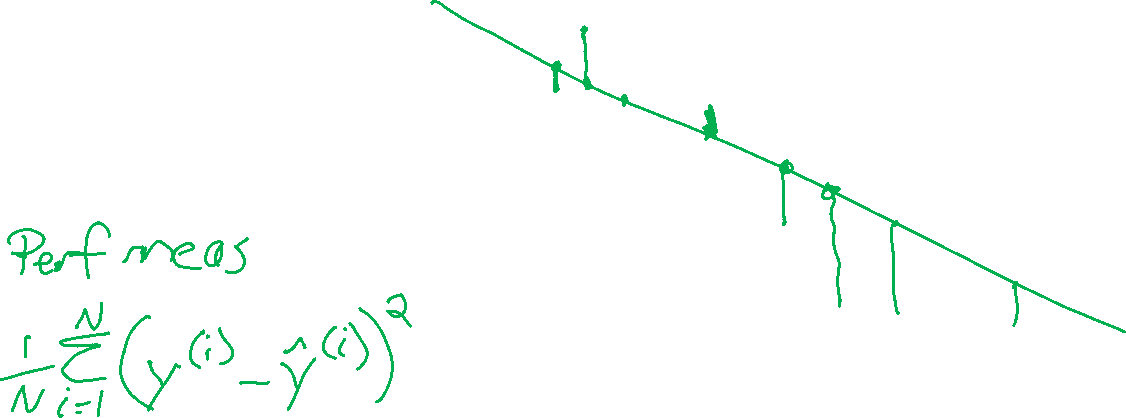 Perf meas
1/N Σ_{i=1}^{N} (y^{(i)} - ŷ^{(i)})^2